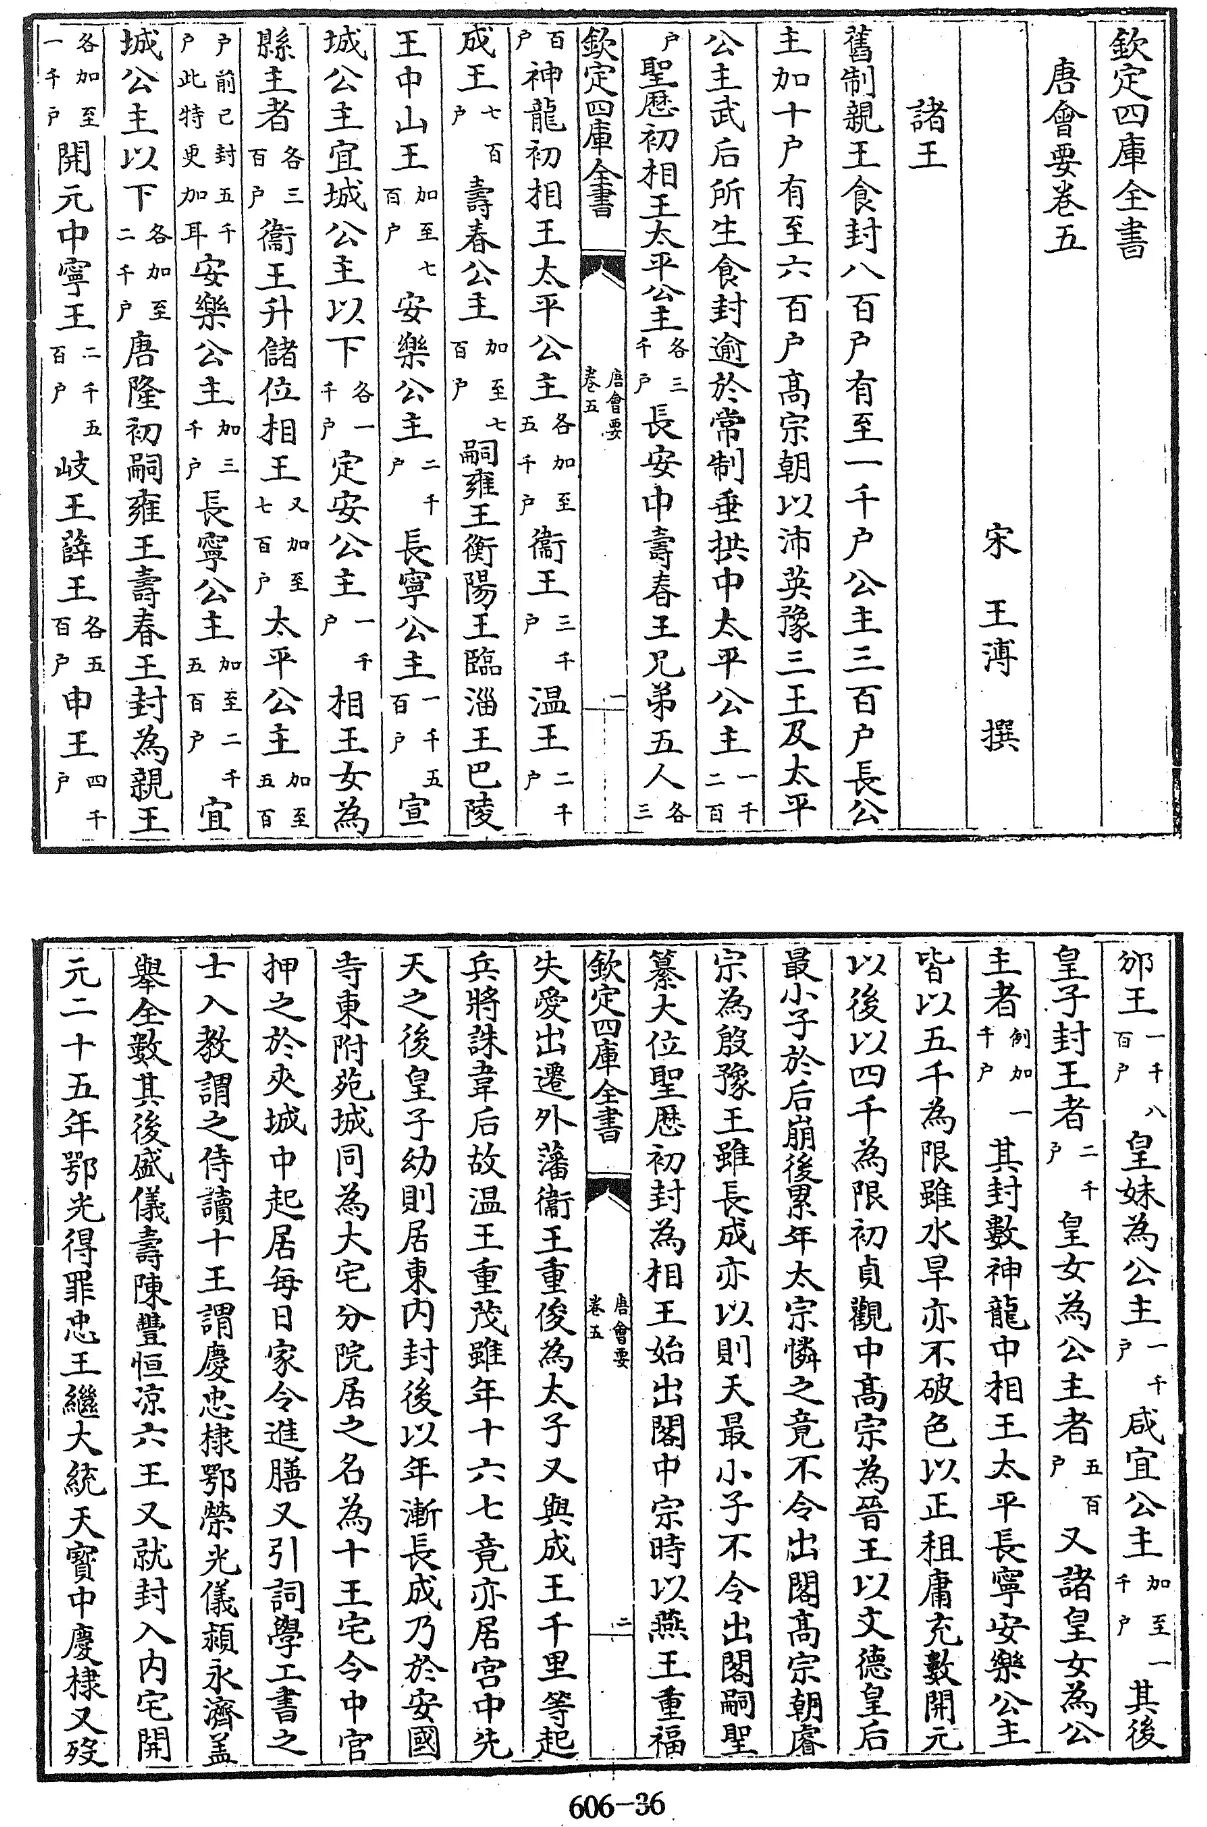 欽定四庫全書
唐會要卷五
宋 王溥 撰
諸王
舊制親王食封八百户有至一千户公主三百户長公
主加十户有至六百户髙宗朝以沛英豫三王及太平
公主武后所生食封逾於常制垂拱中太平公主一千二百
户聖歴初相王太平公主各三千户長安中壽春王兄弟五人各三
欽定四庫全書 唐會要卷五 一
百户神龍初相王太平公主各加至五千户衞王三千户温王二千户
成王七百户壽春公主加至七百户嗣雍王衡陽王臨淄王巴陵
王中山王加至七百户安樂公主二千户長寧公主一千五百户宣
城公主宜城公主以下各一千户定安公主一千户相王女為
縣主者各三百户衞王升儲位相王又加至七百户太平公主加至五百
户前已封五千户此特更加耳安樂公主加三千户長寧公主加至二千五百户宜
城公主以下各加至二千户唐隆初嗣雍王壽春王封為親王
各加至一千户開元中寧王二千五百户岐王薛王各五百户申王四千户
邠王一千八百户皇妹為公主一千户咸宜公主加至一千户其後
皇子封王者二千户皇女為公主者五百户又諸皇女為公
主者例加一千户其封數神龍中相王太平長寧安樂公主
皆以五千為限雖水旱亦不破色以正租庸充數開元
以後以四千為限初貞觀中髙宗為晉王以文德皇后
最小子於后崩後累年太宗憐之竟不令出閣髙宗朝睿
宗為殷豫王雖長成亦以則天最小子不令出閣嗣聖
纂大位聖歴初封為相王始出閣中宗時以燕王重福
欽定四庫全書 唐會要卷五 二
失愛出遷外藩衞王重俊為太子又與成王千里等起
兵將誅韋后故温王重茂雖年十六七竟亦居宫中先
天之後皇子幼則居東内封後以年漸長成乃於安國
寺東附苑城同為大宅分院居之名為十王宅令中官
押之於夾城中起居每日家令進膳又引詞學工書之
士入教謂之侍讀十王謂慶忠棣鄂榮光儀潁永濟蓋
舉全數其後盛儀壽陳豐恒凉六王又就封入内宅開
元二十五年鄂光得罪忠王繼大統天寳中慶棣又歿
606-36